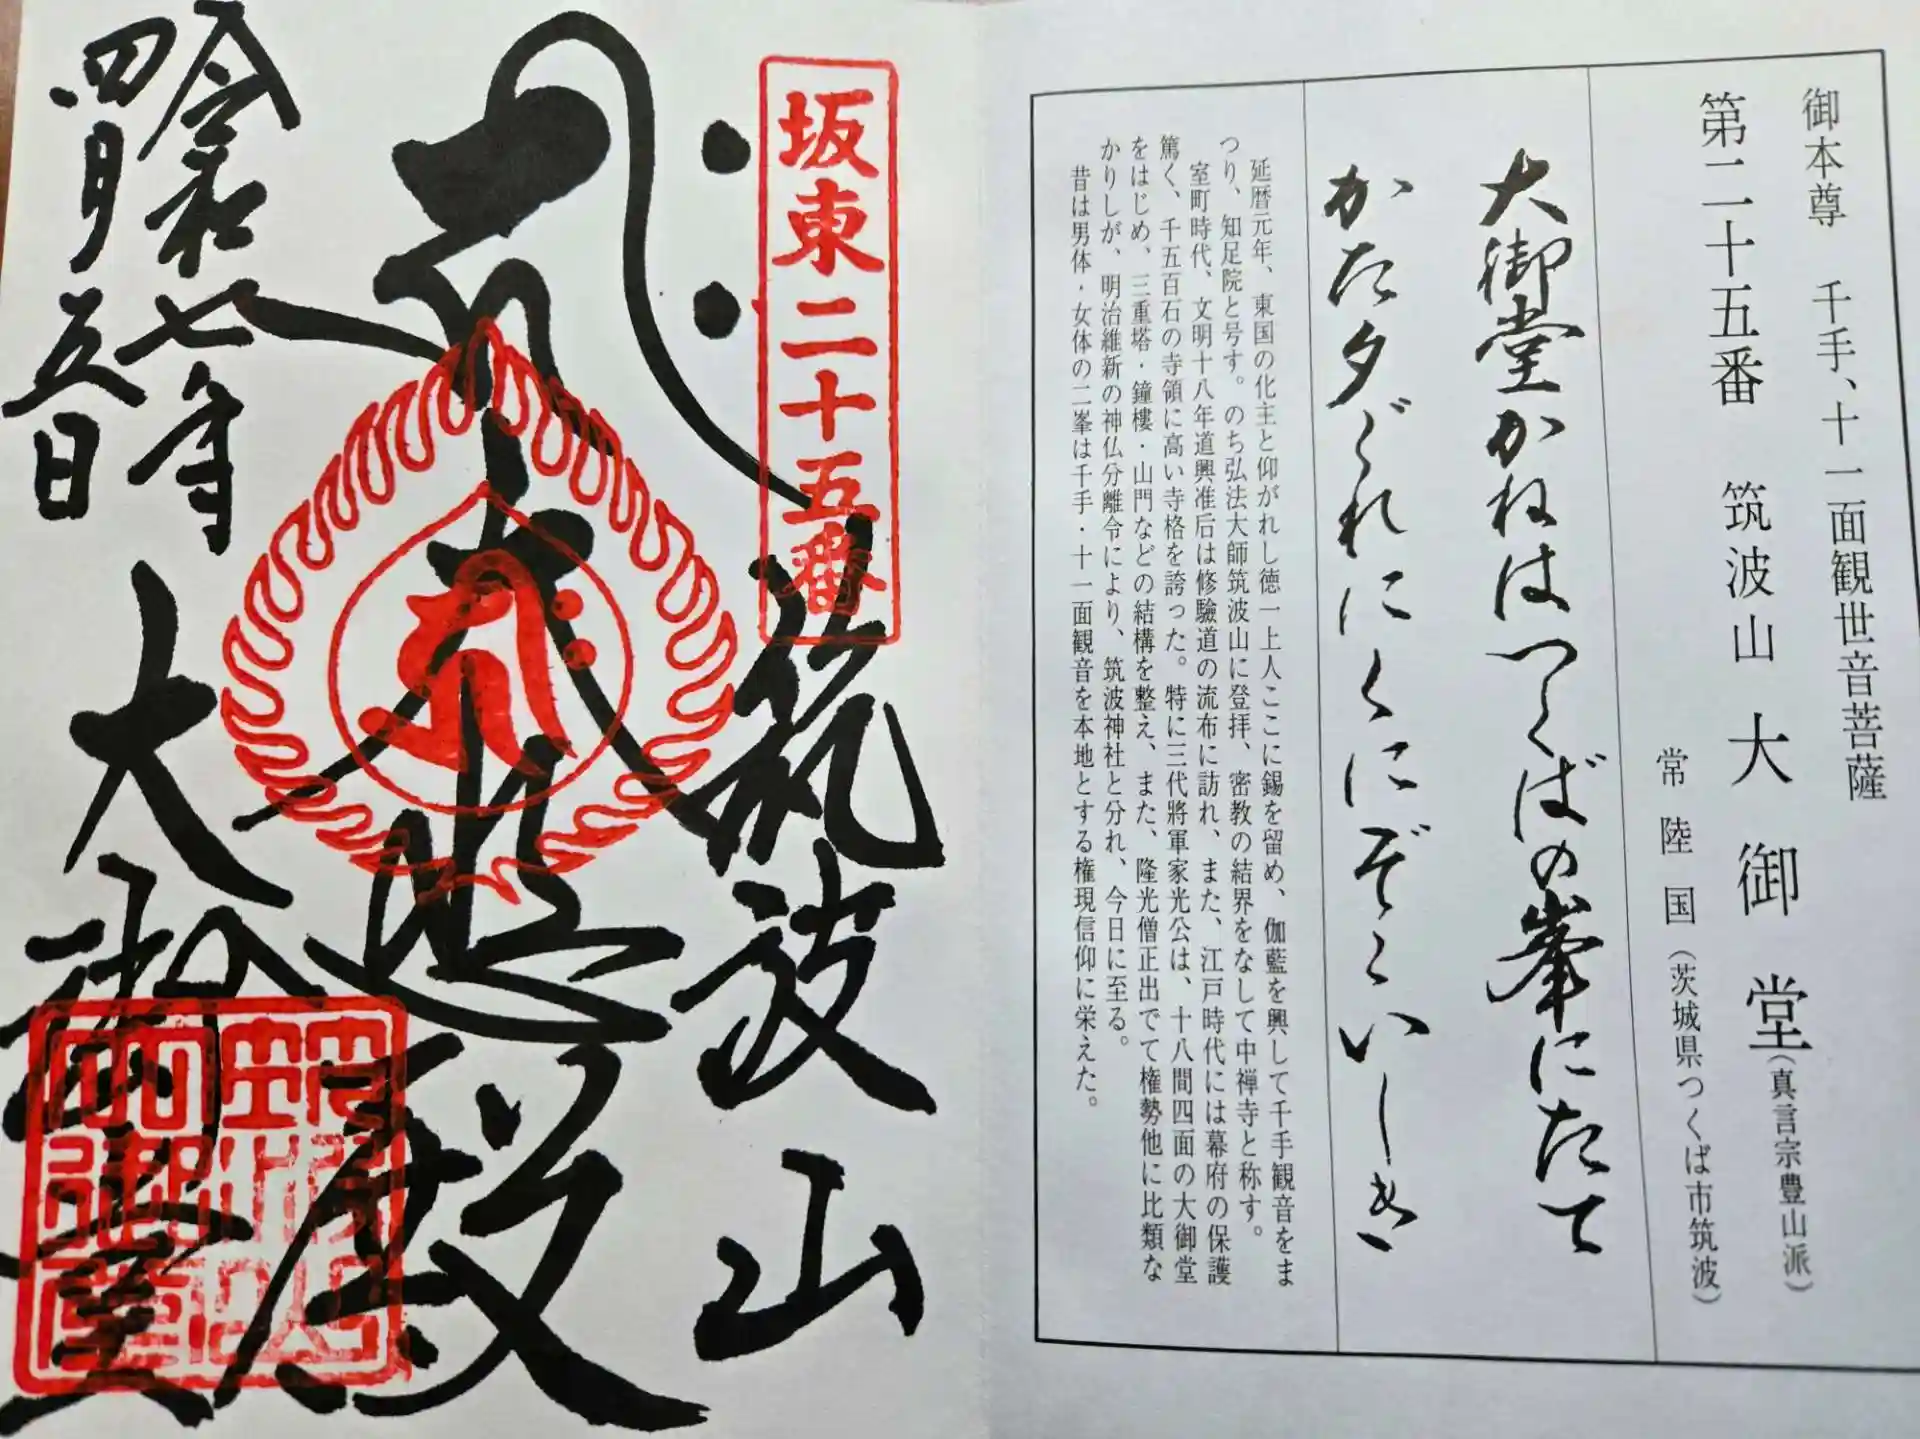 御本尊 千手、十一面観世音菩薩
第二十五番 筑波山 大御堂(真言宗豊山派)
常陸国(茨城県つくば市筑波)
大御堂かねはつくばの峯にたて
かた夕ぐれにくにぞこいしき
延暦元年、東国の化主と仰がれし徳一上人ここに錫を留め、伽藍を興して千手観音をま
つり、知足院と号す。のち弘法大師筑波山に登拝、密教の結界をなして中禅寺と称す。
室町時代、文明十八年道興准后は修驗道の流布に訪れ、また、江戸時代には幕府の保護
篤く、千五百石の寺領に高い寺格を誇った。特に三代將軍家光公は、十八間四面の大御堂
をはじめ、三重塔・鐘樓・山門などの結構を整え、また、隆光僧正出でて権勢他に比類な
かりしが、明治維新の神仏分離令により、筑波神社と分れ、今日に至る。
昔は男体・女体の二峯は千手・十一面観音を本地とする権現信仰に栄えた。
坂東二十五番
筑波山
大悲殿
令和七年
四月五日
大御堂
筑波山
大御堂